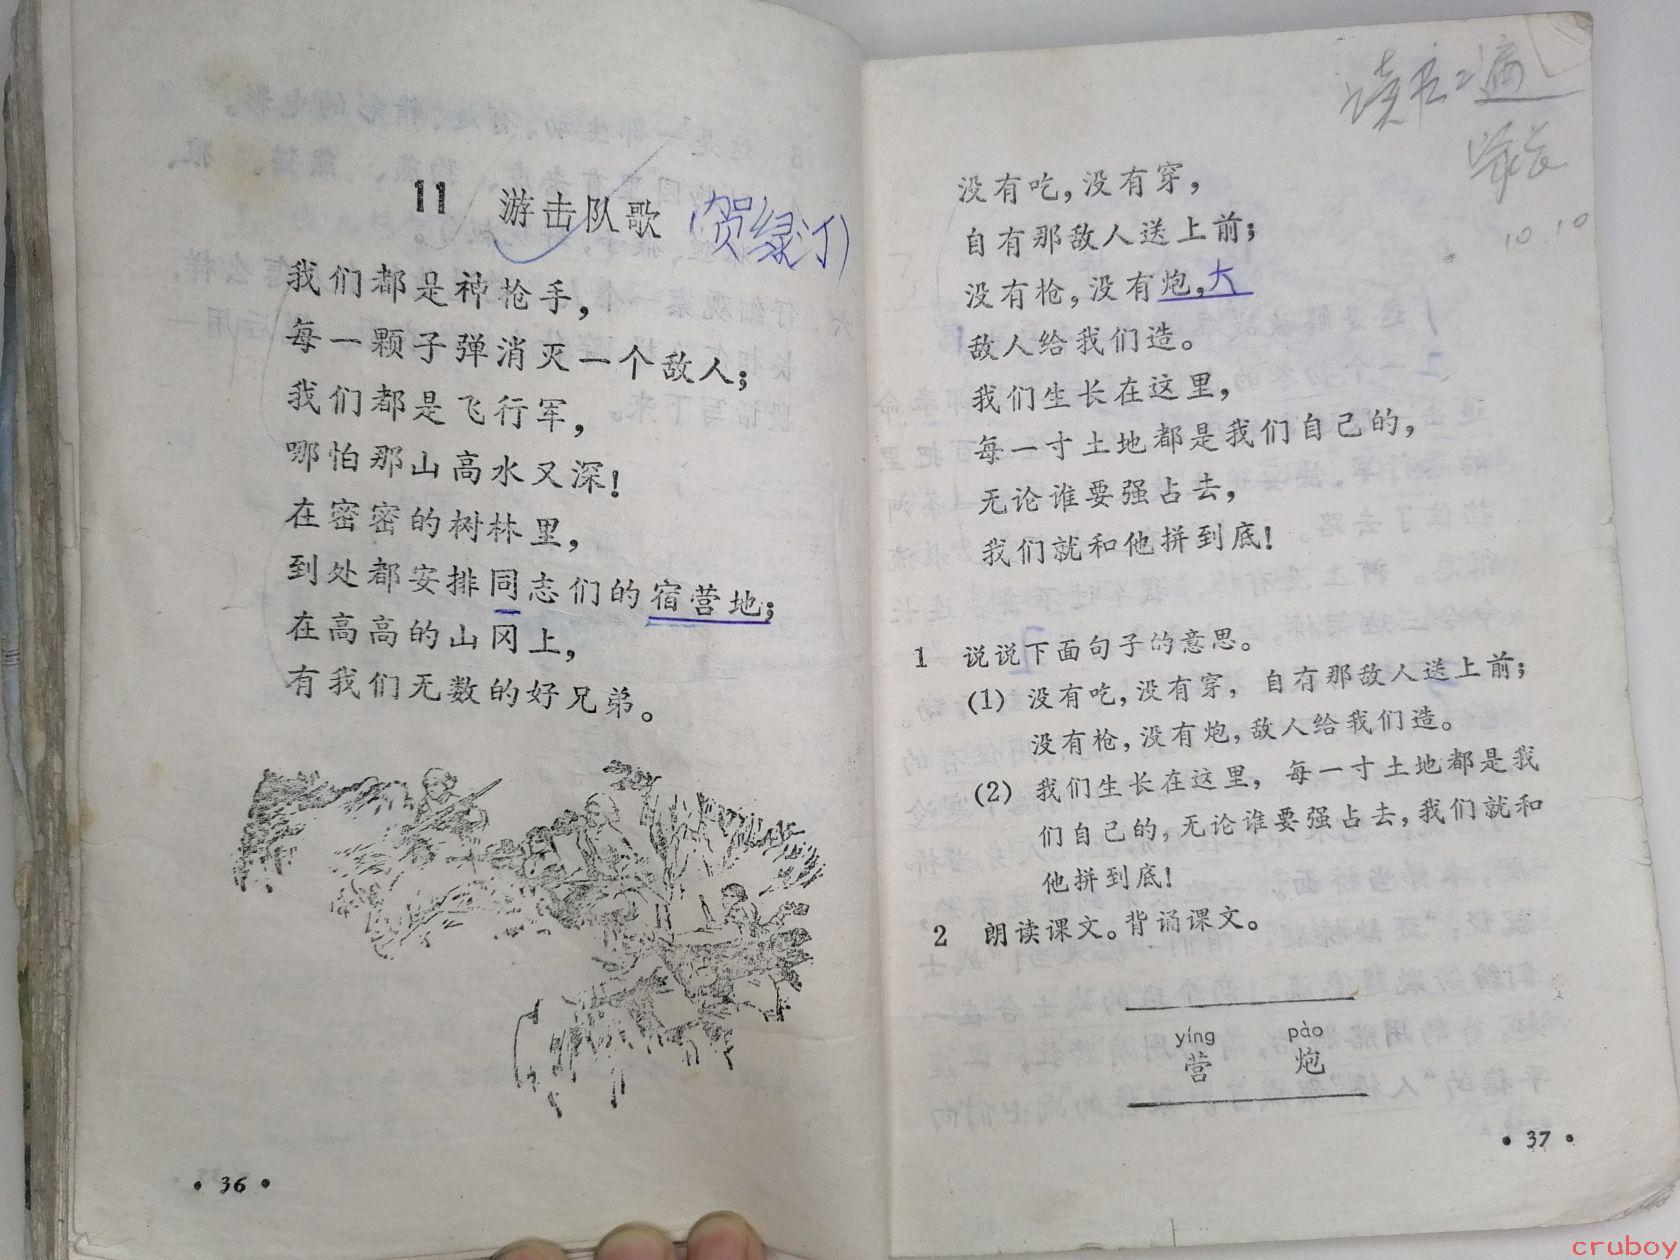 11 游击队歌 (贺绿汀)
我们都是神枪手，
每一颗子弹消灭一个敌人；
我们都是飞行军，
哪怕那山高水又深！
在密密的树林里，
到处都安排同志们的宿营地；
在高高的山冈上，
有我们无数的好兄弟。
·36·
读书2遍
10.10
没有吃，没有穿，
自有那敌人送上前；
没有枪，没有炮，大
敌人给我们造。
我们生长在这里，
每一寸土地都是我们自己的，
无论谁要强占去，
我们就和他拼到底！
1 说说下面句子的意思。
(1) 没有吃，没有穿，自有那敌人送上前；
没有枪，没有炮，敌人给我们造。
(2) 我们生长在这里，每一寸土地都是我
们自己的，无论谁要强占去，我们就和
他拼到底！
2 朗读课文。背诵课文。
yíng pào
营 炮
·37·
cruboy